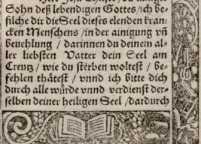 Sohn deß lebendigen Gottes / ich be-
filche dir die Seel dieses elenden kran-
cken Menschens / in der ainigung vñ
beuehlung / darinnen du deinem al-
ler liebsten Vatter dein Seel am
Creutz / wie du sterben woltest / be-
fehlen thätest / vnnd ich bitte dich
durch alle würde vnnd verdienst der-
selben deiner heiligen Seel / dardurch